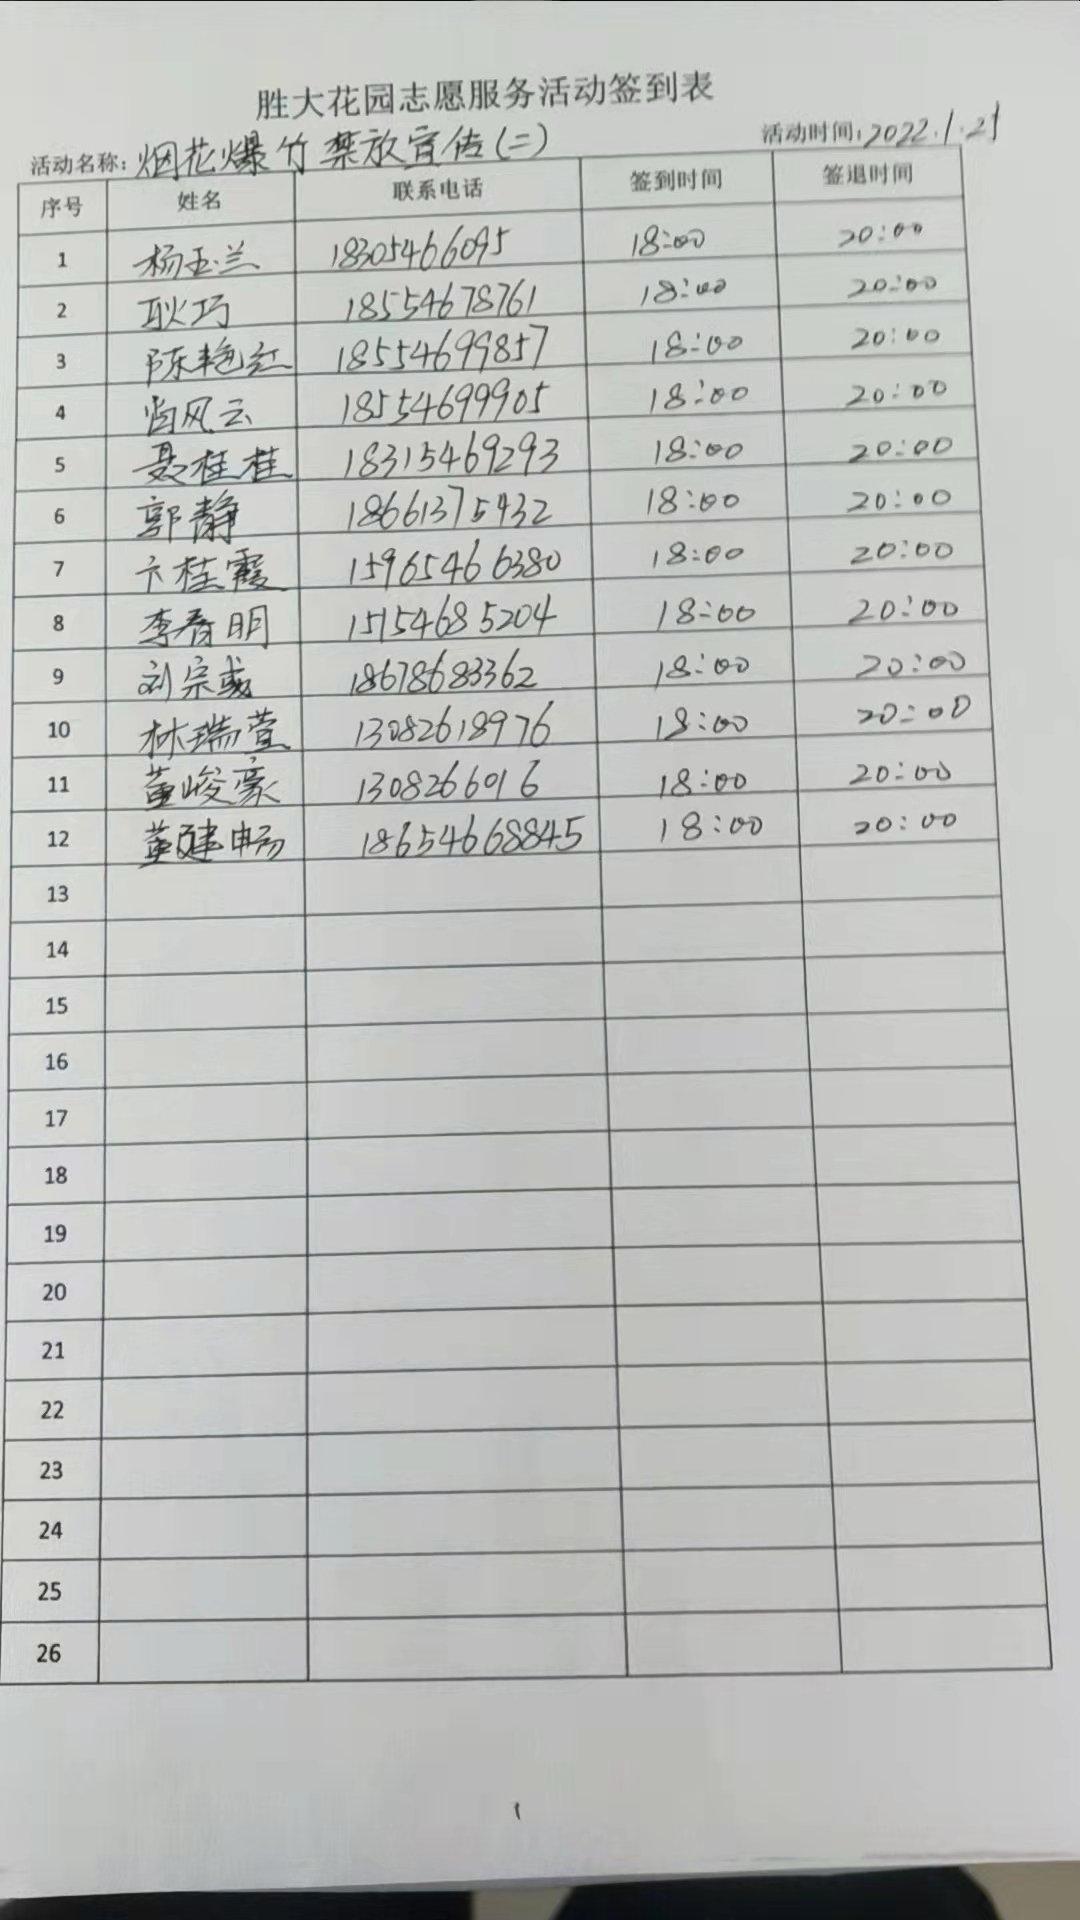 胜大花园志愿服务活动签到表
活动名称：烟花爆竹禁放宣传(二) 活动时间：2022.1.21
序号 姓名 联系电话 签到时间 签退时间
1 杨玉兰 18305466095 18:00 20:00
2 耿巧 18554678761 18:00 20:00
3 陈艳红 18554699857 18:00 20:00
4 尚风云 18554699905 18:00 20:00
5 聂桂桂 18315469293 18:00 20:00
6 郭静 18661375432 18:00 20:00
7 卞桂霞 15965466380 18:00 20:00
8 李春明 15154685204 18:00 20:00
9 刘宗彧 18678683362 18:00 20:00
10 林瑞萱 13082618976 18:00 20:00
11 董峻豪 1308266016 18:00 20:00
12 董建畅 18654668845 18:00 20:00
13
14
15
16
17
18
19
20
21
22
23
24
25
26
1